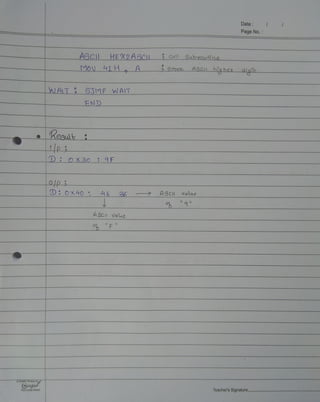 Date : / /
Page No. :
ASCII HEX2ASCII ; call subroutine
MOV 41H, A ; store ASCII higher digit
WAIT : SJMP WAIT
END
Result :
i/p :
D : 0x30 : 9F
o/p :
D : 0x40 : 46 39 → ASCII value
↓ of "9"
ASCII value
of "F"
Teacher's Signature